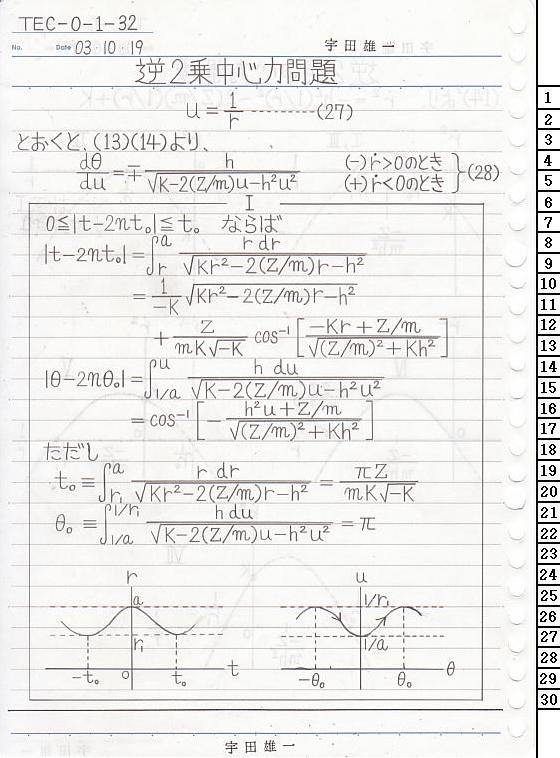 TEC-0-1-32
No. Date 03・10・19 宇田雄一
逆2乗中心力問題
u = 1/r ---------(27)
とおくと、(13)(14)より、
dθ/du = ∓ h/√(K-2(Z/m)u-h²u²) (-) ṙ>0のとき (+) ṙ<0のとき }(28)
I
0≦|t-2nt₀|≦t₀ ならば
|t-2nt₀| = ∫_r^a r dr/√(Kr²-2(Z/m)r-h²)
= 1/-K √(Kr²-2(Z/m)r-h²)
+ Z/(mK√-K) cos⁻¹[(-Kr+Z/m)/√((Z/m)²+Kh²)]
|θ-2nθ₀| = ∫_{1/a}^u h du/√(K-2(Z/m)u-h²u²)
= cos⁻¹[-(h²u+Z/m)/√((Z/m)²+Kh²)]
ただし
t₀ ≡ ∫_{r₁}^a r dr/√(Kr²-2(Z/m)r-h²) = πZ/(mK√-K)
θ₀ ≡ ∫_{1/a}^{1/r₁} h du/√(K-2(Z/m)u-h²u²) = π
r u
a 1/r₁
r₁ 1/a
-t₀ 0 t₀ t -θ₀ θ₀ θ
宇田雄一
1
2
3
4
5
6
7
8
9
10
11
12
13
14
15
16
17
18
19
20
21
22
23
24
25
26
27
28
29
30